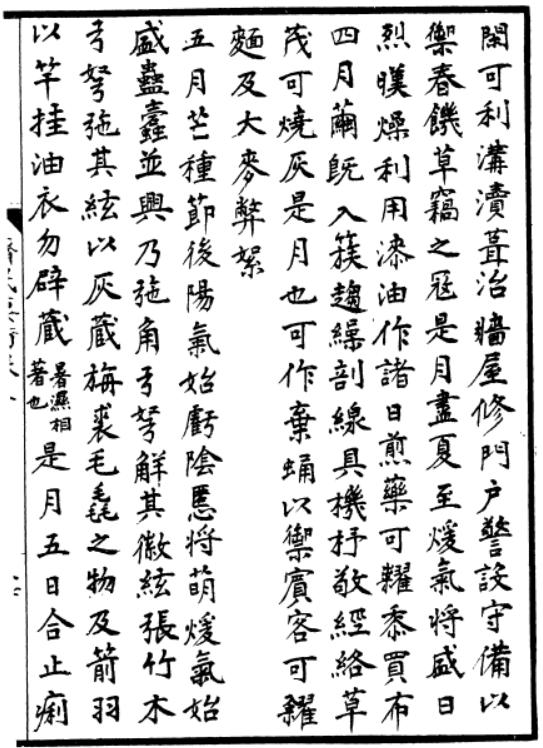 閑可利溝瀆葺治牆屋修門户警設守備以
禦春饑草竊之冦是月盡夏至煖氣將盛日
烈暵燥利用漆油作諸日煎藥可糶黍買布
四月繭旣入簇趨繰剖線具機杼敬經絡草
茂可燒灰是月也可作棄蛹以禦賓客可糴
麵及大麥弊絮
五月芒種節後陽氣始虧陰慝將萌煖氣始
盛蠱蠹並興乃弛角弓弩解其徽絃張竹木
弓弩弛其絃以灰藏旃裘毛毳之物及箭羽
以竿挂油衣勿辟藏暑濕相著也是月五日合止痢